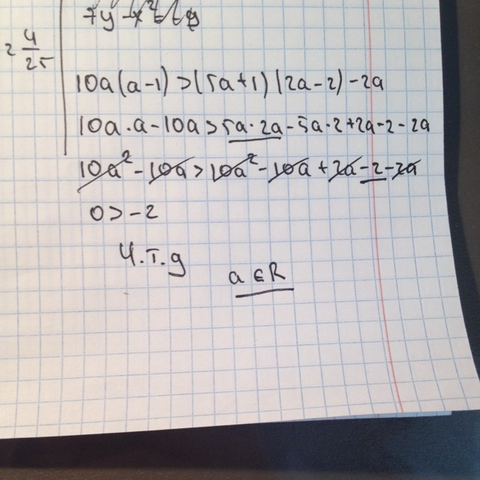 2 4/25
10a(a-1)>(5a+1)(2a-2)-2a
10a·a-10a>5a·2a-5a·2+2a-2-2a
10a²-10a>10a²-10a+2a-2-2a
0>-2
Ч.Т.д
a∈R